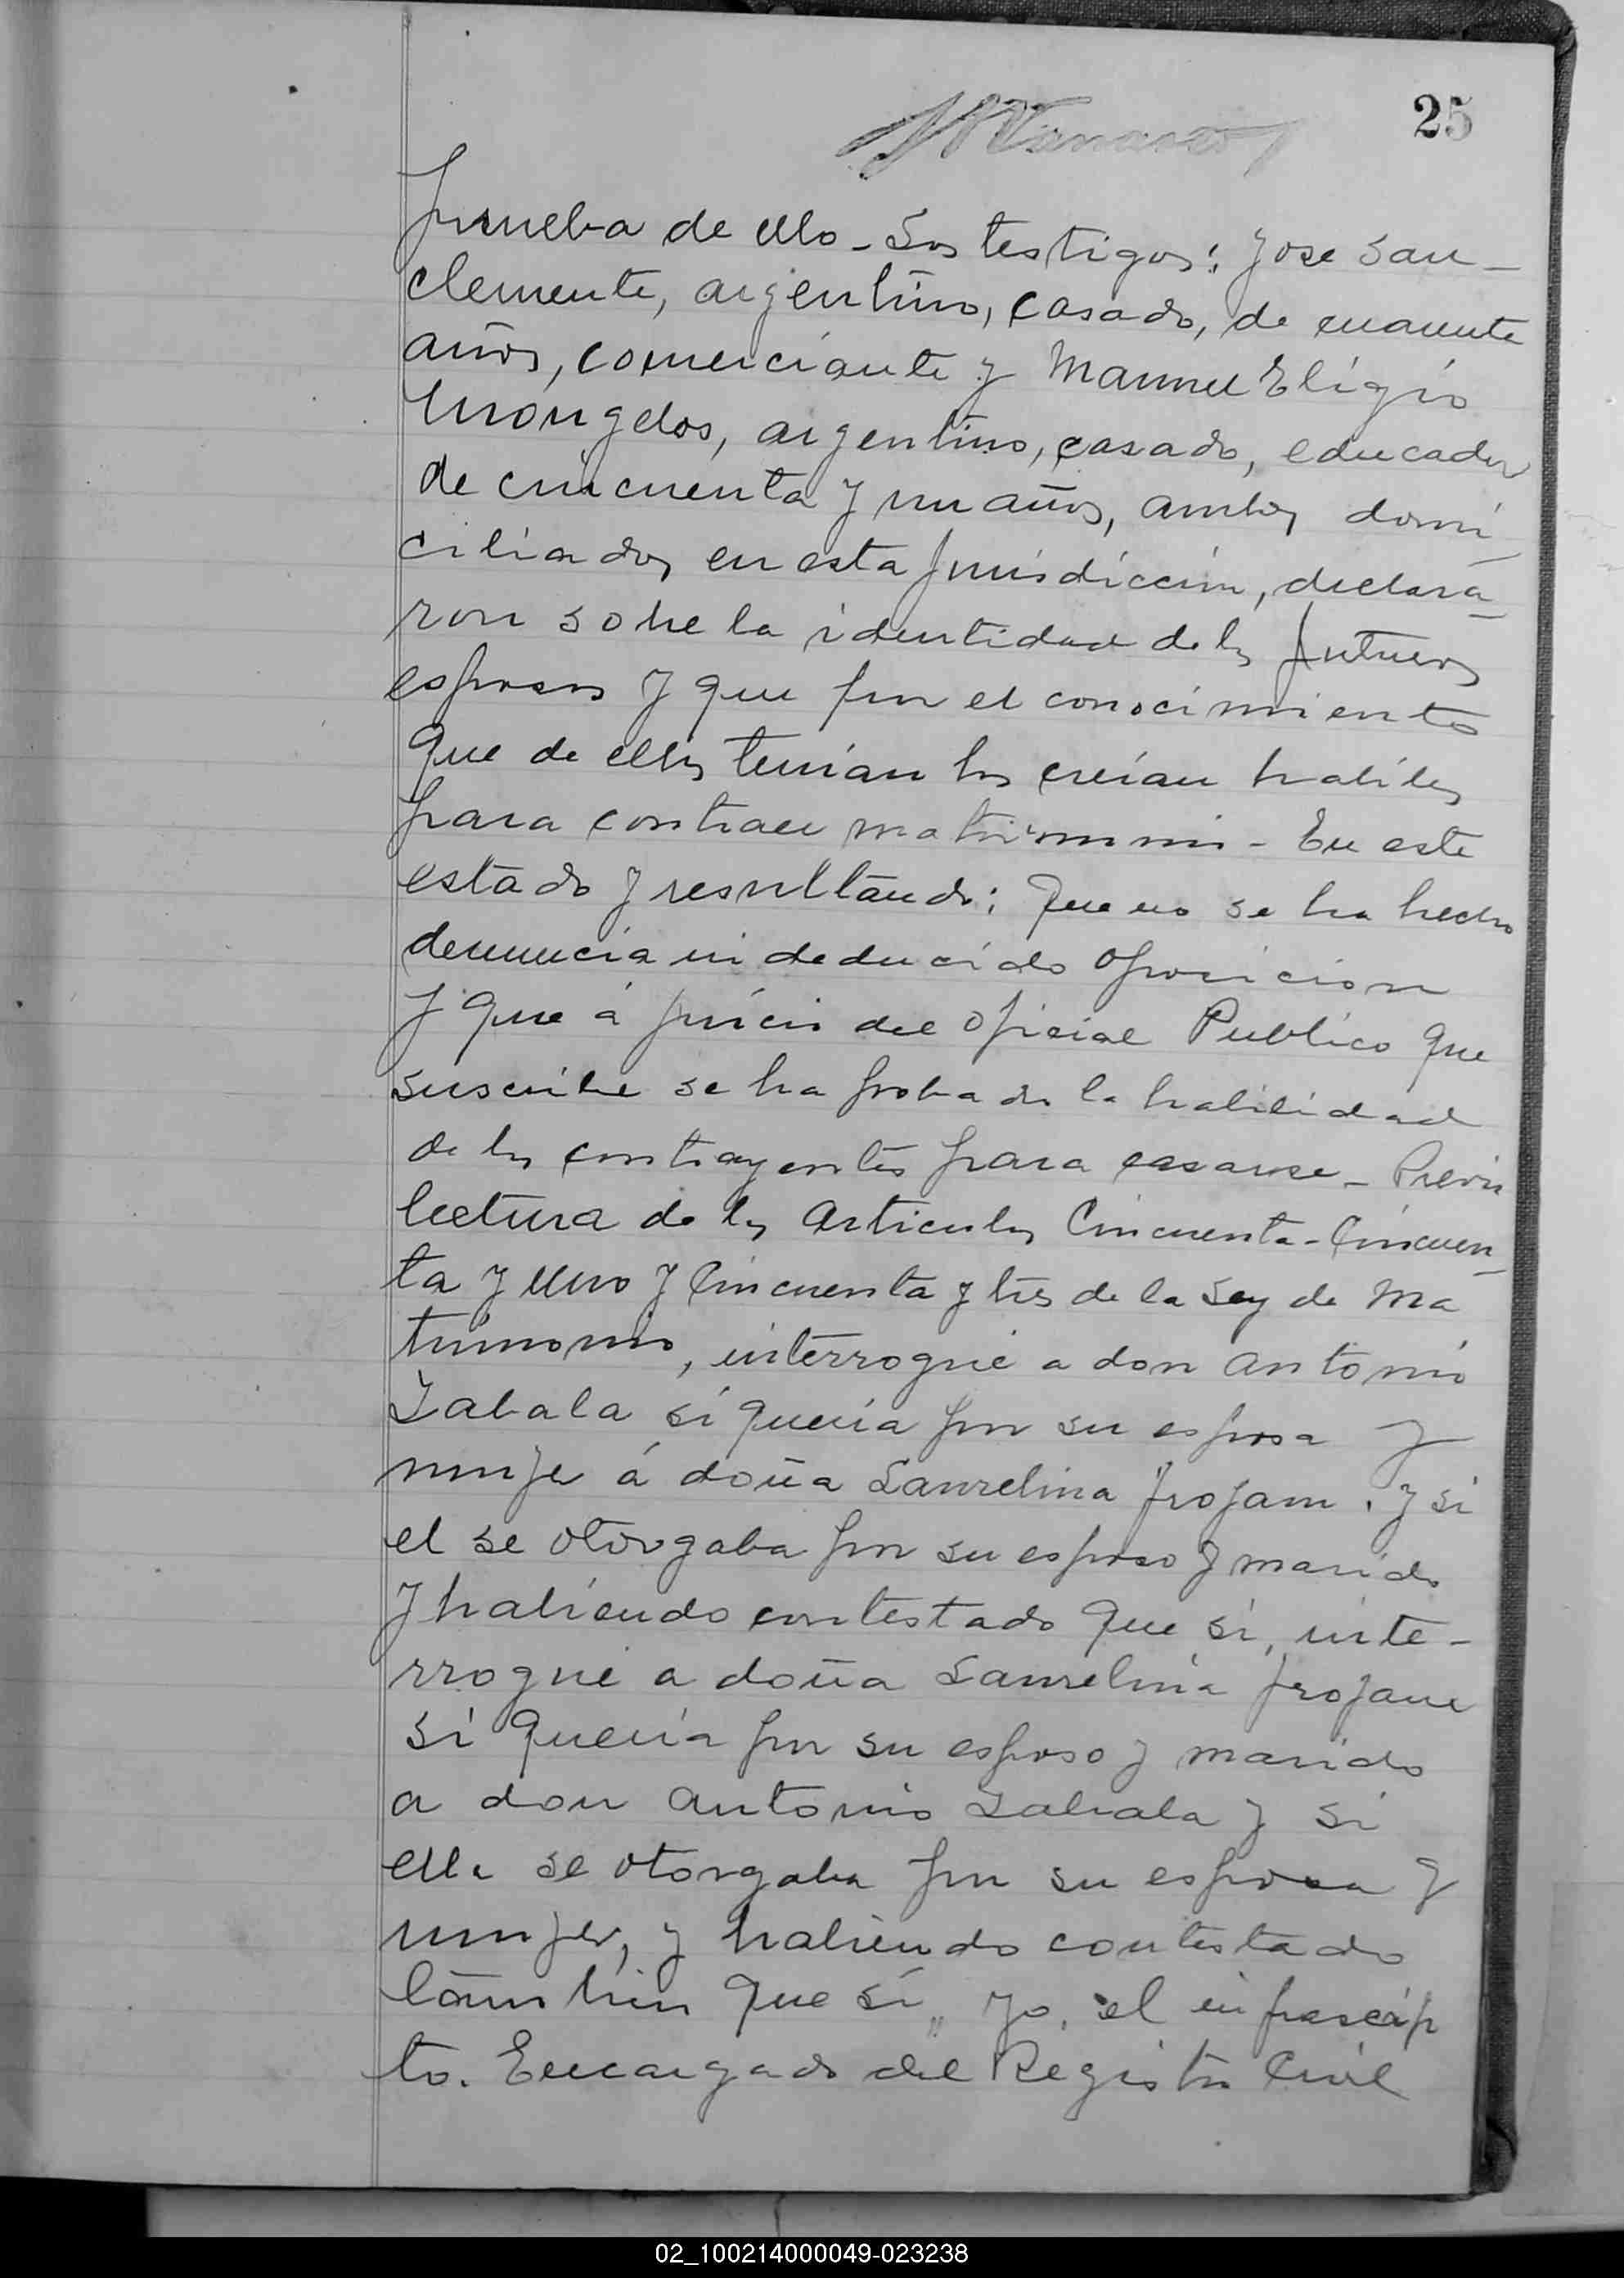 25
prueba de ello - Los testigos: Jose San-
clemente, argentino, casado, de cuarenta
años, comerciante y Manuel Eligio
Mongelos, argentino, casado, educador
de cincuenta y un años, ambos domi
ciliados en esta jurisdiccion, declara-
ron sobre la identidad de los futuros
esposos y que por el conocimiento
que de ellos tenian los creian habiles
para contraer matrimonio - En este
estado y resultando: Que no se ha hecho
denuncia ni deducido oposicion
y que á juicio del oficial Publico que
suscribe se ha probado la habilidad
de los contrayentes para casarse - Previa
lectura de los articulos Cincuenta - Cincuen-
ta y uno y Cincuenta y tres de la Ley de Ma
trimonio, interrogué a don Antonio
Zabala si queria por su esposa y
mujer á doña Laurelina Frojam . y si
el se otorgaba por su esposo y marido
y habiendo contestado que si, inte-
rrogué a doña Laurelina Frojam
si queria por su esposo y marido
a don Antonio Zabala y si
ella se otorgaba por su esposa y
mujer, y habiendo contestado
tambien que si,, yo, el infrascrip
to. Encargado del Registro Civil
02_100214000049-023238